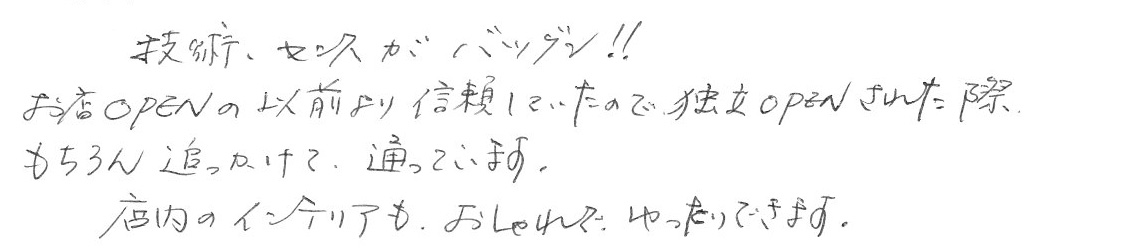 技術、センスがバツグン!!
お店OPENの以前より信頼していたので、独立OPENされた際、
もちろん追っかけて、通っています。
店内のインテリアも、おしゃれで、ゆったりできます。